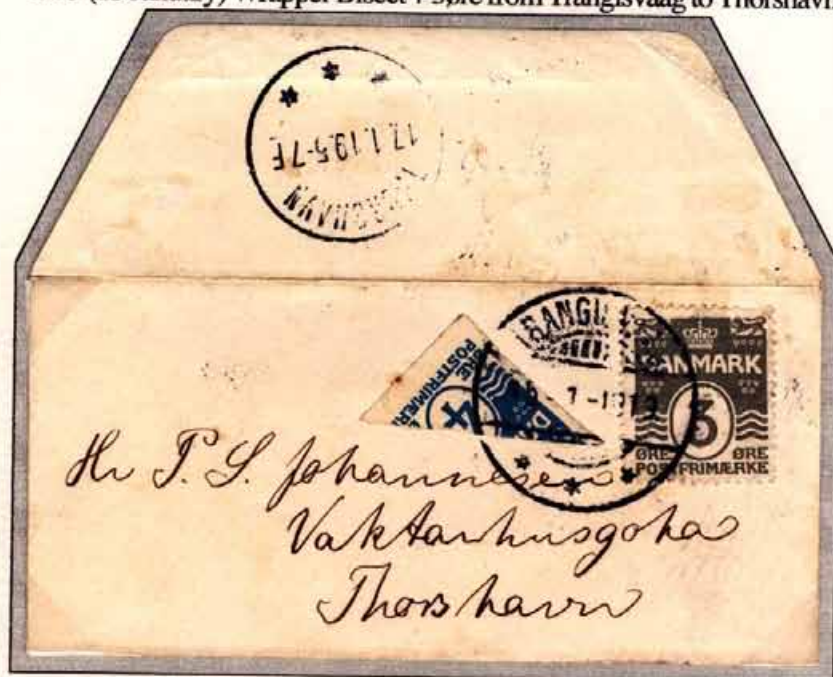 Wrapper Bisect + 3øre from Trangisvaag to Thorshavn
17.1.19.5-7E
HAVN
POSTFRIMÆR
4
DANMARK
3
ØRE ØRE
POSTFRIMÆRKE
Hr P. S. Johannesen
Vaktarhusgøta
Thorshavn